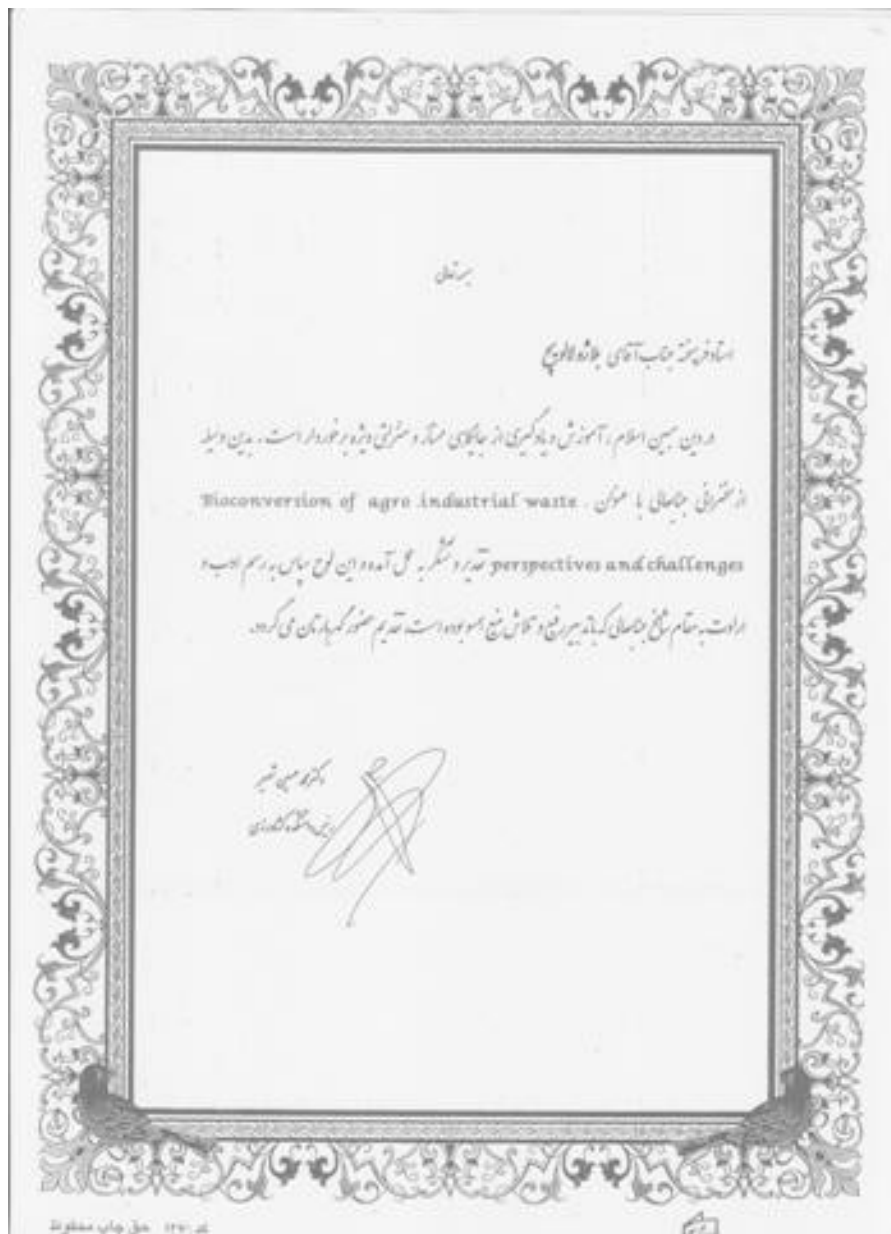 بسمه تعالی
استاد فرهیخته جناب آقای بلاژه لالویچ
در دین مبین اسلام، آموزش و یادگیری از جایگاهی ممتاز و منزلتی ویژه برخوردار است. بدین وسیله
از سخنرانی جنابعالی با عنوان Bioconversion of agro industrial waste
perspectives and challenges تقدیر و تشکر به عمل آمده و این لوح سپاس به رسم ادب و
ارادت به مقام شامخ جنابعالی که با تدبیر رفیع و تلاش منیع همسو بوده است، تقدیم حضور گهربارتان می گردد.
دکتر
رئیس دانشکده کشاورزی
حق چاپ محفوظ